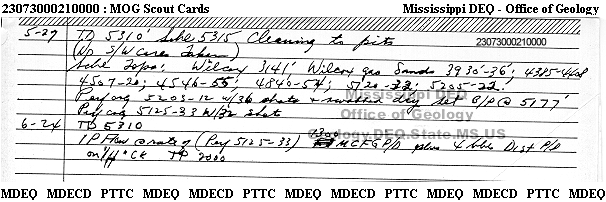 23073000210000 : MOG Scout Cards Mississippi DEQ - Office of Geology
5-29 TD 5310' Schl 5315' Cleaning to pits
23073000210000
(No S/W Cores Taken)
Schl Tops: Wilcox 3141' Wilcox gas Sands 3930-36';
4507-20; 4546-55'; 4840-54; 5120-33; 5205-22.
Mississippi DEQ
Perf orig 5203-12 w/36 shots & swabbed dry set B/P @ 5177'
Office of Geology
Perf orig 5125-33 w/32 shots
Geology.DEQ.State.MS.US
6-24 TD 5310
IP Flow @ rate of (Perf 5125-33) 7300 MCFGP/D plus 4 bbls Dist P/D
on CK TP 2000
MDEQ MDECD PTTC MDEQ MDECD PTTC MDEQ MDECD PTTC MDEQ MDECD PTTC MDEQ